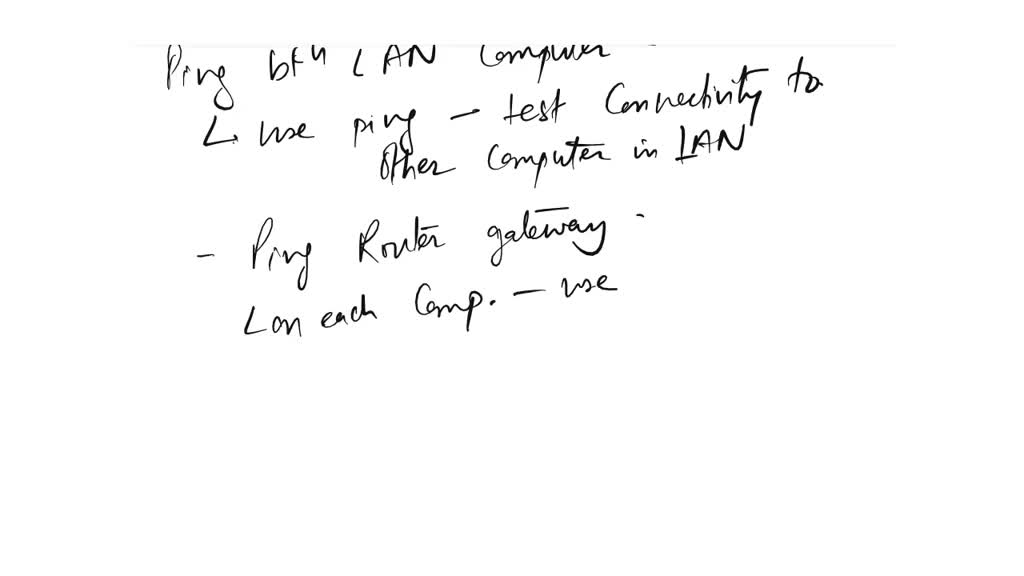 Ping btn LAN Computer -
↳ use ping - test Connectivity to
Other Computer in LAN
- Ping Router gateway -
Lon each Comp. - use